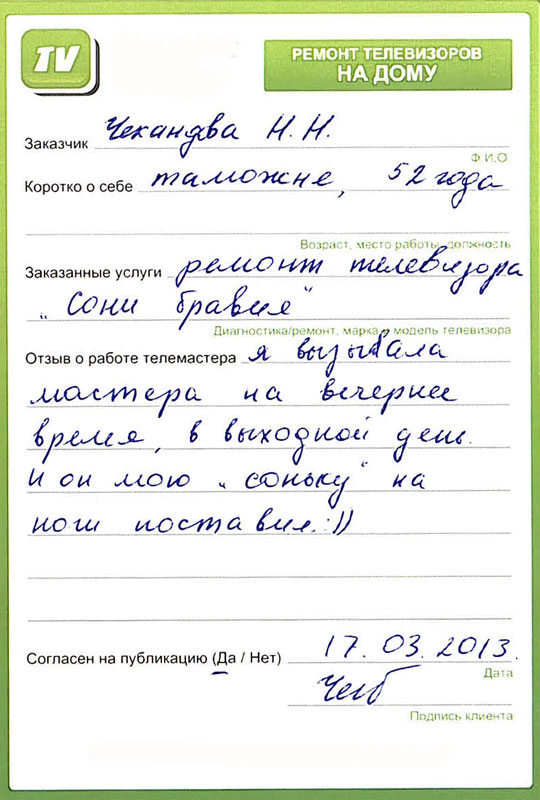 TV
РЕМОНТ ТЕЛЕВИЗОРОВ
НА ДОМУ
Заказчик Чеканова Н.Н.
Ф.И.О.
Коротко о себе таможне, 52 года
Возраст, место работы, должность
Заказанные услуги ремонт телевизора
„Сони бравия"
Диагностика/ремонт, марка и модель телевизора
Отзыв о работе телемастера я вызывала
мастера на вечернее
время, в выходной день.
И он мою „соньку" на
ноги поставил :))
Согласен на публикацию (Да / Нет) 17.03.2013.
Дата
Подпись клиента